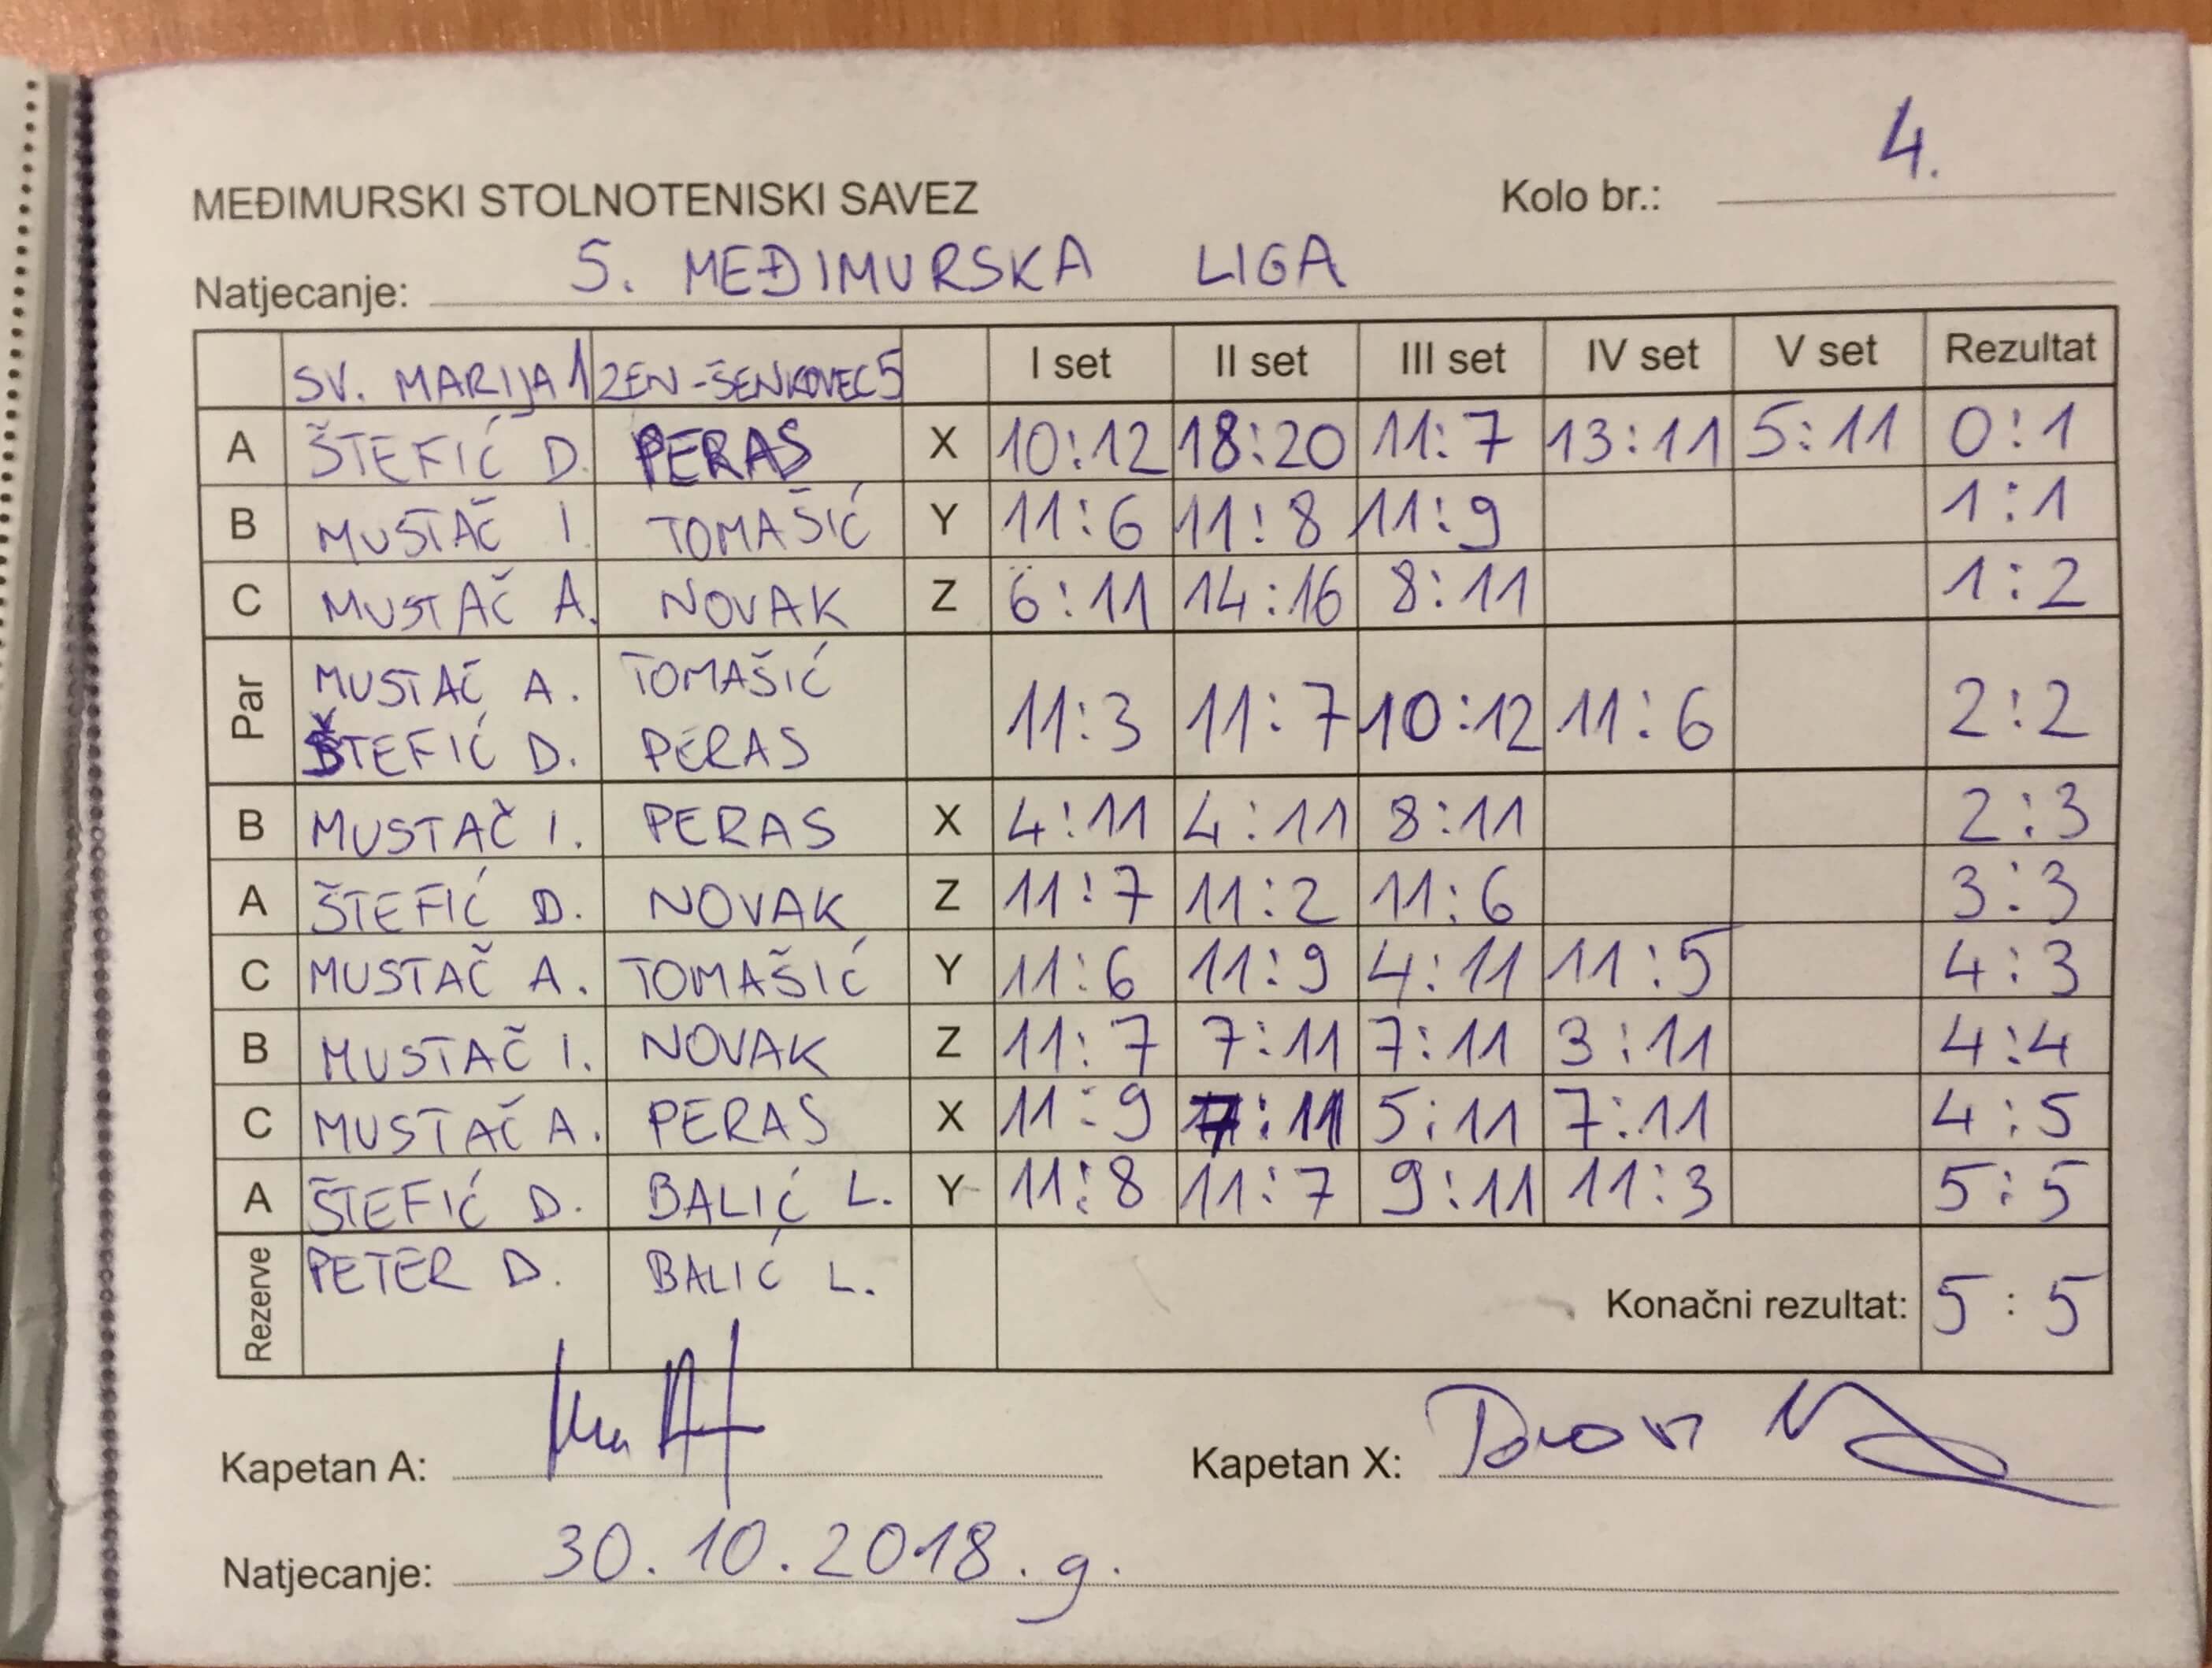 4.
MEĐIMURSKI STOLNOTENISKI SAVEZ Kolo br.:
Natjecanje: 5. MEĐIMURSKA LIGA
SV. MARIJA 1 ZEN-ŠENKOVEC 5 I set II set III set IV set V set Rezultat
A ŠTEFIĆ D. PERAS X 10:12 18:20 11:7 13:11 5:11 0:1
B MUSTAČ I TOMAŠIĆ Y 11:6 11:8 11:9 1:1
C MUSTAČ A. NOVAK Z 6:11 14:16 8:11 1:2
Par MUSTAČ A. TOMAŠIĆ
ŠTEFIĆ D. PERAS 11:3 11:7 10:12 11:6 2:2
B MUSTAČ I. PERAS X 4:11 4:11 8:11 2:3
A ŠTEFIĆ D. NOVAK Z 11:7 11:2 11:6 3:3
C MUSTAČ A. TOMAŠIĆ Y 11:6 11:9 4:11 11:5 4:3
B MUSTAČ I. NOVAK Z 11:7 7:11 7:11 3:11 4:4
C MUSTAČ A. PERAS X 11:9 7:11 5:11 7:11 4:5
A ŠTEFIĆ D. BALIĆ L. Y 11:8 11:7 9:11 11:3 5:5
Rezerve PETER D. BALIĆ L.
Konačni rezultat: 5:5
Kapetan A: Kapetan X:
Natjecanje: 30.10.2018.g.